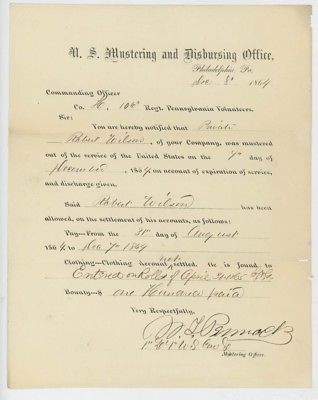 U. S. Mustering and Disbursing Office,
Philadelphia, Pa.
Dec 8th 1864
Commanding Officer
Co. H, 106th Regt. Pennsylvania Volunteers.
Sir:
You are hereby notified that Private
Robert Wilson, of your Company, was mustered
out of the service of the United States on the 7th day of
, 1864 on account of expiration of service,
and discharge given.
Said Robert Wilson has been
allowed, on the settlement of his accounts, as follows:
Pay—From the 31st day of August
1864 to Dec 7th 1864
Clothing—Clothing Account not settled. He is found to
Entered on Rolls of April
Bounty—$ one Hundred paid
Very Respectfully,
1st Lt 1st U.S.
Mustering Officer.